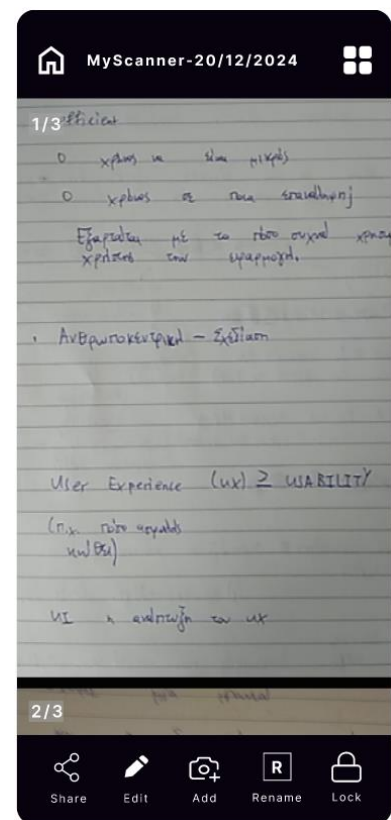 MyScanner-20/12/2024
1/3 efficient
Ο χρόνος να είναι μικρός
Ο χρόνος σε ποια
Εξαρτάται με το πόσο συχνά
χρήστης την εφαρμογή.
· Ανθρωποκεντρική – Σχεδίαση
User Experience (UX) ≥ USABILITY
(π.χ. πόσο ασφαλές
UI η ανάπτυξη του UX
2/3
Share Edit Add Rename Lock
R